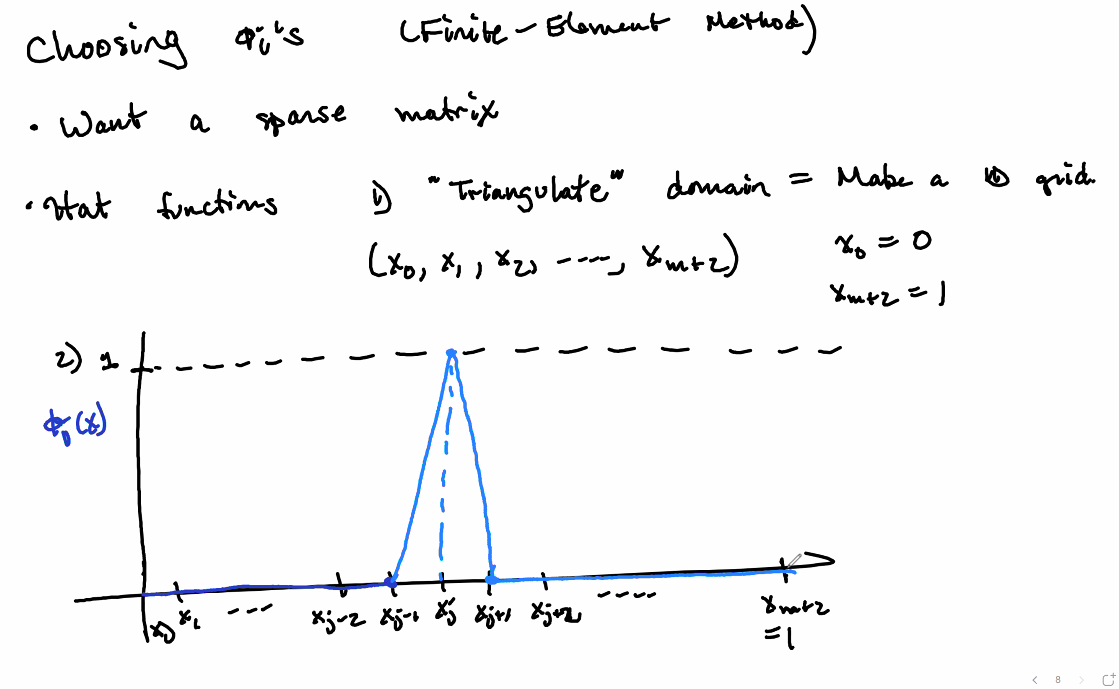 Choosing Φi's (Finite-Element Method)
• Want a sparse matrix
• Hat functions 1) "Triangulate" domain = Make a grid.
(x0, x1, x2, ----, xm+2) x0 = 0
xm+2 = 1
2) 1
Φj(x)
x0 x1 --- xj-2 xj-1 xj xj+1 xj+2 ---- xm+2
=1
8